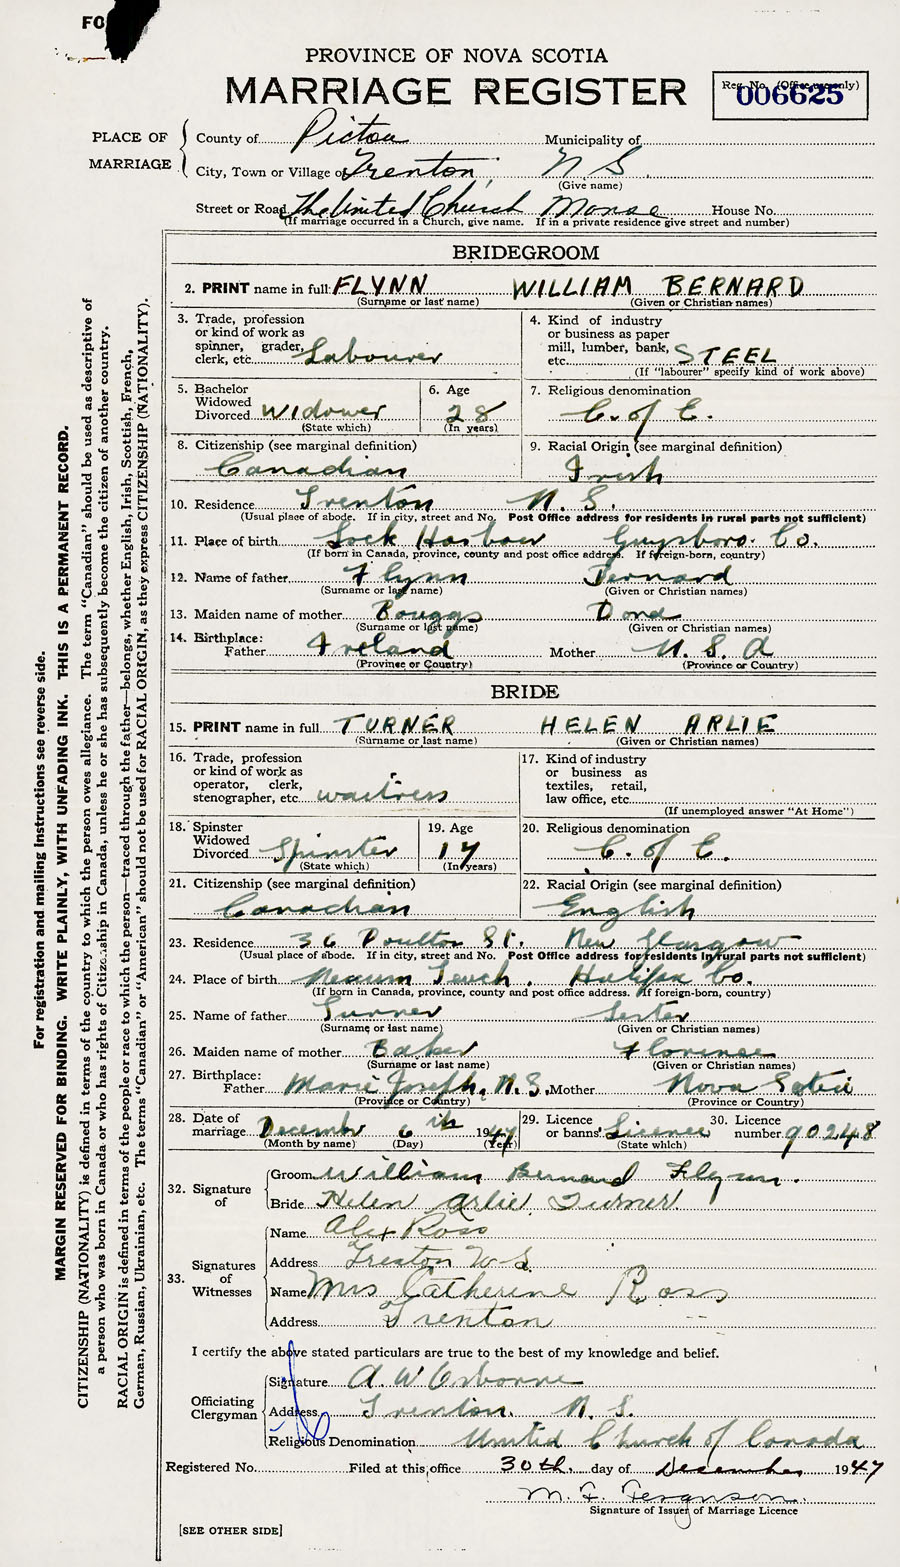 FO
PROVINCE OF NOVA SCOTIA
MARRIAGE REGISTER
Reg. No. (Office use only)
006625
PLACE OF MARRIAGE
County of Pictou Municipality of
City, Town or Village of Trenton, N S.
(Give name)
Street or Road The United Church Manse House No.
(If marriage occurred in a Church, give name. If in a private residence give street and number)
BRIDEGROOM
2. PRINT name in full: FLYNN WILLIAM BERNARD
(Surname or last name) (Given or Christian names)
3. Trade, profession or kind of work as spinner, grader, clerk, etc. Labourer
4. Kind of industry or business as paper mill, lumber, bank, etc. STEEL
(If "labourer" specify kind of work above)
5. Bachelor Widowed Divorced Widower
(State which)
6. Age 28
(In years)
7. Religious denomination C. of E.
8. Citizenship (see marginal definition)
Canadian
9. Racial Origin (see marginal definition)
Irish
10. Residence Trenton N. S.
(Usual place of abode. If in city, street and No. Post Office address for residents in rural parts not sufficient)
11. Place of birth Harbour Guysboro. Co.
(If born in Canada, province, county and post office address. If foreign-born, country)
12. Name of father Flynn Bernard
(Surname or last name) (Given or Christian names)
13. Maiden name of mother
(Surname or last name) (Given or Christian names)
14. Birthplace:
Father Ireland Mother
(Province or Country) (Province or Country)
BRIDE
15. PRINT name in full TURNER HELEN ARLIE
(Surname or last name) (Given or Christian names)
16. Trade, profession or kind of work as operator, clerk, stenographer, etc. waitress
17. Kind of industry or business as textiles, retail, law office, etc.
(If unemployed answer "At Home")
18. Spinster Widowed Divorced Spinster
(State which)
19. Age 17
(In years)
20. Religious denomination C. of E.
21. Citizenship (see marginal definition)
Canadian
22. Racial Origin (see marginal definition)
English
23. Residence 36 Poulton St. New Glasgow
(Usual place of abode. If in city, street and No. Post Office address for residents in rural parts not sufficient)
24. Place of birth Necum Teuch. Halifax Co.
(If born in Canada, province, county and post office address. If foreign-born, country)
25. Name of father Turner Lester
(Surname or last name) (Given or Christian names)
26. Maiden name of mother Baker Florence
(Surname or last name) (Given or Christian names)
27. Birthplace:
Father Marie Joseph, N.S. Mother Nova Scotia
(Province or Country) (Province or Country)
28. Date of marriage December 6th 1947
(Month by name) (Day) (Year)
29. Licence or banns? Licence
(State which)
30. Licence number 90248
32. Signature of
Groom William Bernard Flynn.
Bride Helen Arlie Turner
33. Signatures of Witnesses
Name Alex Ross
Address Trenton N.S.
Name Mrs Catherine Ross
Address Trenton
I certify the above stated particulars are true to the best of my knowledge and belief.
Officiating Clergyman
Signature A. W Osborne
Address Trenton. N. S.
Religious Denomination United Church of Canada
Registered No. Filed at this office 30th. day of December 1947
M. F. Ferguson.
Signature of Issuer of Marriage Licence
[SEE OTHER SIDE]
For registration and mailing instructions see reverse side.
MARGIN RESERVED FOR BINDING. WRITE PLAINLY, WITH UNFADING INK. THIS IS A PERMANENT RECORD.
CITIZENSHIP (NATIONALITY) is defined in terms of the country to which the person owes allegiance. The term "Canadian" should be used as descriptive of
a person who was born in Canada or who has rights of Citizenship in Canada, unless he or she has subsequently become the citizen of another country.
RACIAL ORIGIN is defined in terms of the people or race to which the person—traced through the father—belongs, whether English, Irish, Scottish, French,
German, Russian, Ukrainian, etc. The terms "Canadian" or "American" should not be used for RACIAL ORIGIN, as they express CITIZENSHIP (NATIONALITY).